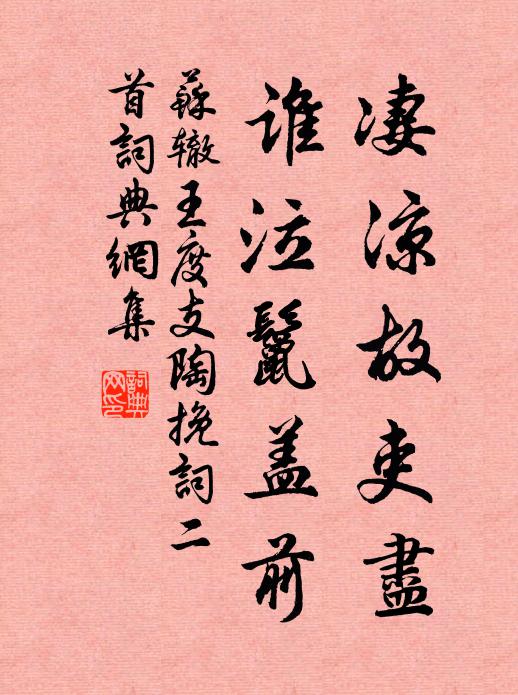 凄凉故吏盡
誰泣鬣盖前
蘇辙王度支陶挽詞二
首詞典網集
詞典
网印